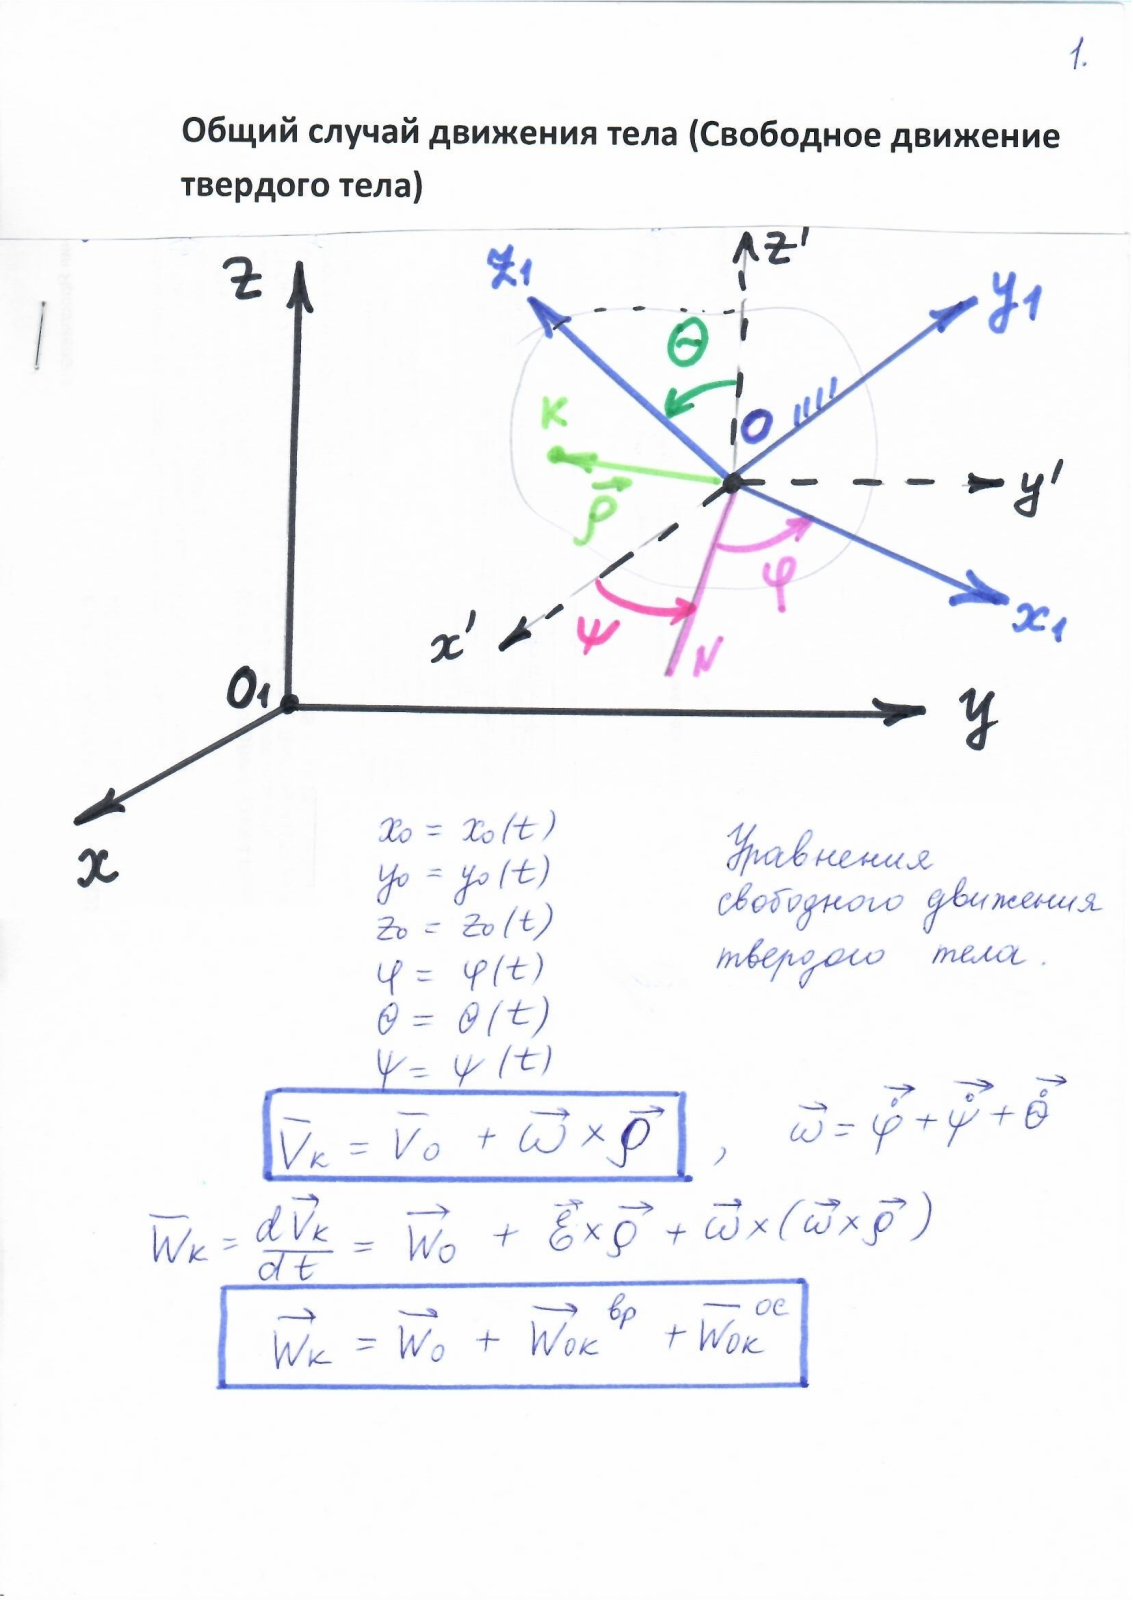 1.
Общий случай движения тела (Свободное движение
твердого тела)
z
z₁
z'
y₁
θ
K
O
ρ⃗
y'
φ
x'
ψ
N
x₁
O₁
y
x
x₀ = x₀(t)
y₀ = y₀(t)
z₀ = z₀(t)
φ = φ(t)
θ = θ(t)
ψ = ψ(t)
Уравнения
свободного движения
твердого тела.
V̄ₖ = V̄₀ + ω⃗ × ρ⃗ , ω⃗ = φ̇⃗ + ψ̇⃗ + θ̇⃗
W̄ₖ = dV⃗ₖ/dt = W⃗₀ + ε⃗ × ρ⃗ + ω⃗ × (ω⃗ × ρ⃗)
W⃗ₖ = W⃗₀ + W⃗₀ₖ^вр + W̄₀ₖ^ос